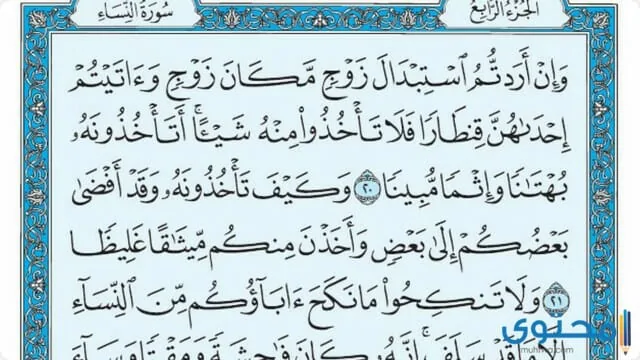 الجزء الرابع
سورة النساء
وَإِنْ أَرَدتُّمُ ٱسْتِبْدَالَ زَوْجٍ مَّكَانَ زَوْجٍ وَءَاتَيْتُمْ
إِحْدَىٰهُنَّ قِنطَارًا فَلَا تَأْخُذُوا۟ مِنْهُ شَيْـًٔا أَتَأْخُذُونَهُۥ
بُهْتَٰنًا وَإِثْمًا مُّبِينًا ٢٠ وَكَيْفَ تَأْخُذُونَهُۥ وَقَدْ أَفْضَىٰ
بَعْضُكُمْ إِلَىٰ بَعْضٍ وَأَخَذْنَ مِنكُم مِّيثَٰقًا غَلِيظًا
٢١ وَلَا تَنكِحُوا۟ مَا نَكَحَ ءَابَآؤُكُم مِّنَ ٱلنِّسَآءِ
قَدْ سَلَفَ إِنَّهُۥ كَانَ فَٰحِشَةً وَمَقْتًا وَسَآءَ
محتوى
muhtwa.com